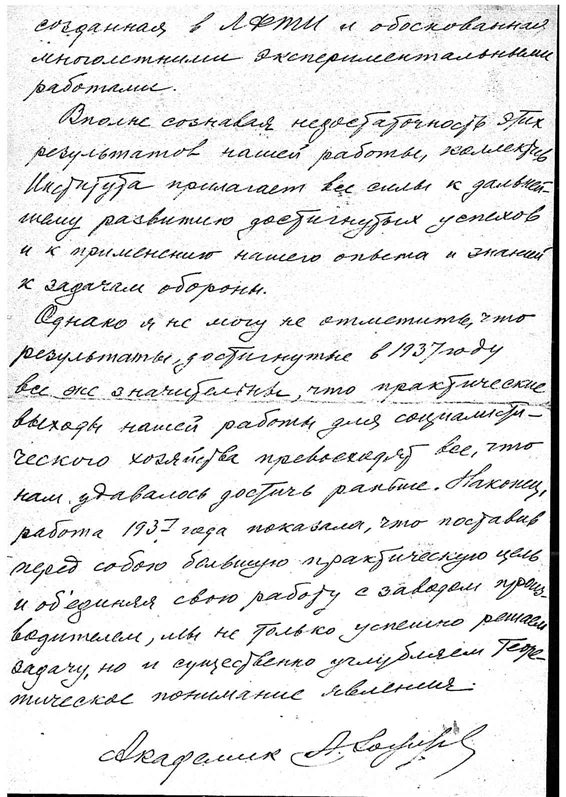 созданная в ЛФТИ и обоснованная
многолетними экспериментальными
работами.
Вполне сознавая недостаточность этих
результатов нашей работы, коллектив
Института прилагает все силы к дальней-
шему развитию достигнутых успехов
и к применению нашего опыта и знаний
к задачам обороны.
Однако я не могу не отметить, что
результаты, достигнутые в 1937 году
все же значительны, что практические
выходы нашей работы для социалисти-
ческого хозяйства превосходят все, что
нам удавалось достичь раньше. Наконец,
работа 1937 года показала, что поставив
перед собою большую практическую цель
и об'единяя свою работу с заводом произ-
водителем, мы не только успешно решаем
задачу, но и существенно углубляем теоре-
тическое понимание явления.
Академик А.